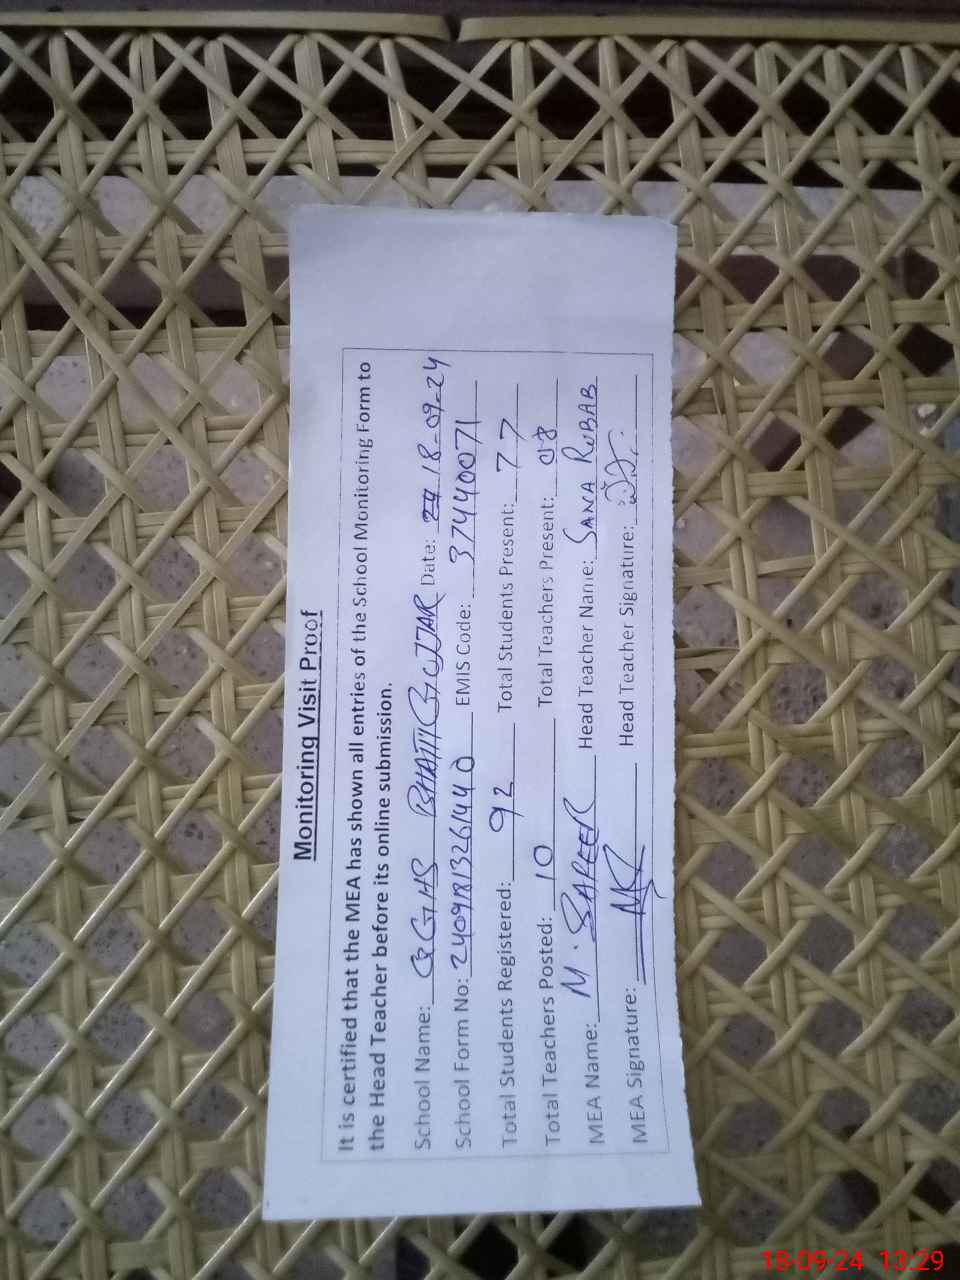 Monitoring Visit Proof
It is certified that the MEA has shown all entries of the School Monitoring Form to
the Head Teacher before its online submission.
School Name: GGHS BHATTI GUJJAR Date: 18-09-24
School Form No: 24091813261440 EMIS Code: 37440071
Total Students Registered: 92 Total Students Present: 77
Total Teachers Posted: 10 Total Teachers Present: 08
MEA Name: M. SAFEER Head Teacher Name: SANA RUBAB
MEA Signature: Head Teacher Signature:
18-09-24 13:29